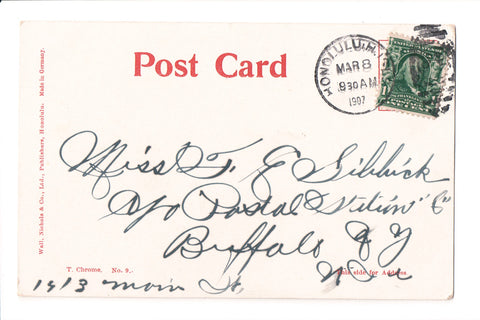 Post Card
HONOLULU, H.
MAR 8
8 30 AM
1907
Wall, Nichols & Co., Ltd., Publishers, Honolulu. Made in Germany.
Miss T. E
c/o Postal Station "C"
Buffalo N Y
T. Chrome, No. 9.
This side for Address
1913 Main St.